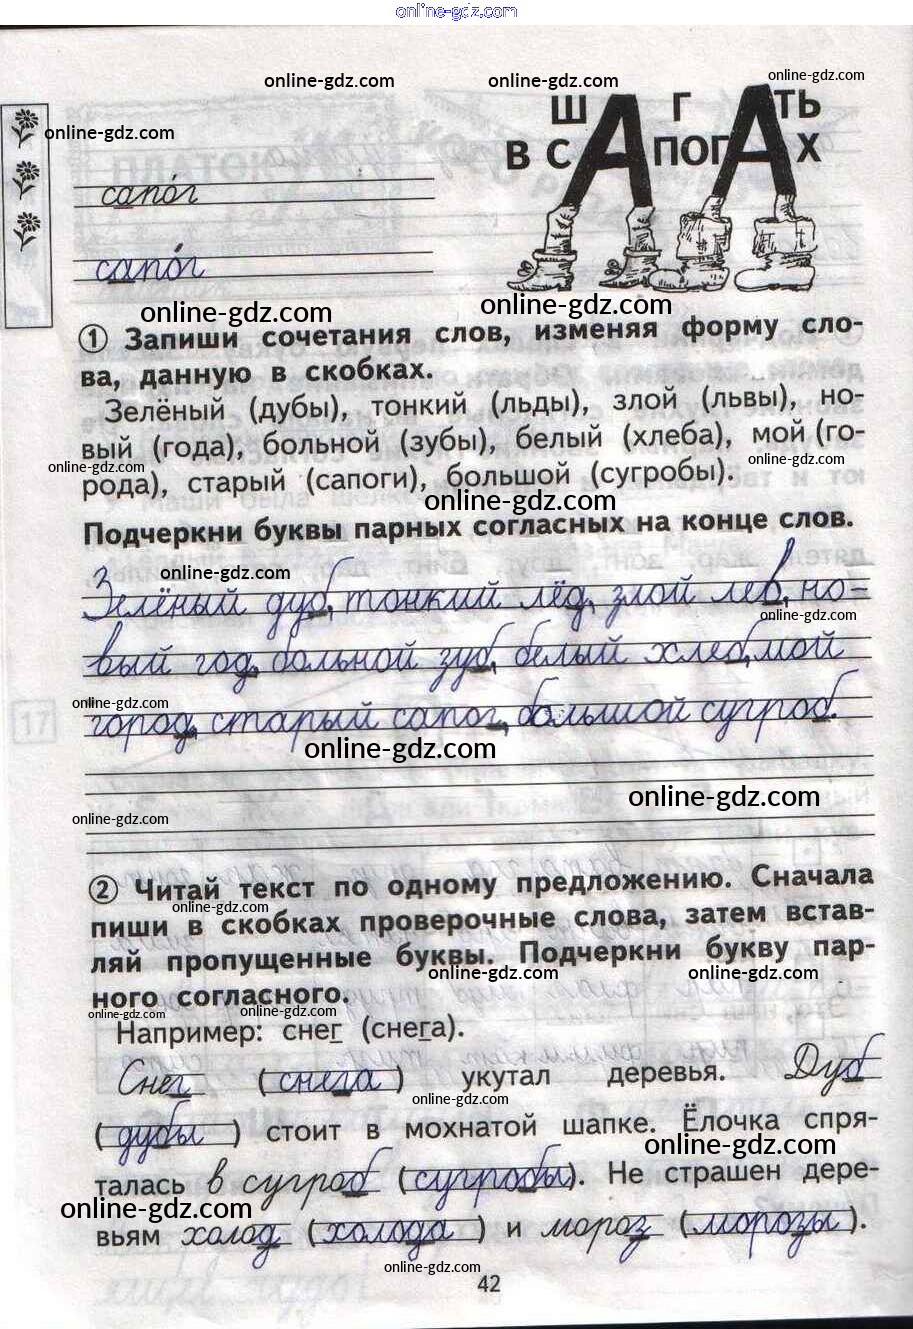 online-gdz.com
online-gdz.com online-gdz.com online-gdz.com
online-gdz.com
ШАГАТЬ
В САПОГАХ
сапо́г
сапо́г
online-gdz.com online-gdz.com
1 Запиши сочетания слов, изменяя форму сло-
ва, данную в скобках.
Зелёный (дубы), тонкий (льды), злой (львы), но-
вый (года), больной (зубы), белый (хлеба), мой (го-
online-gdz.com online-gdz.com
рода), старый (сапоги), большой (сугробы).
online-gdz.com
Подчеркни буквы парных согласных на конце слов.
online-gdz.com
Зелёный дуб, тонкий лёд, злой лев, но-
online-gdz.com
вый год, больной зуб, белый хлеб, мой
online-gdz.com
город, старый сапог, большой сугроб.
online-gdz.com
online-gdz.com
online-gdz.com
2 Читай текст по одному предложению. Сначала
online-gdz.com
пиши в скобках проверочные слова, затем встав-
ляй пропущенные буквы. Подчеркни букву пар-
online-gdz.com online-gdz.com
ного согласного.
online-gdz.com online-gdz.com
Например: снег (снега).
Снег (снега) укутал деревья. Дуб
online-gdz.com
(дубы) стоит в мохнатой шапке. Ёлочка спря-
online-gdz.com
талась в сугроб (сугробы). Не страшен дере-
online-gdz.com
вьям холод (холода) и мороз (морозы).
online-gdz.com
42
17